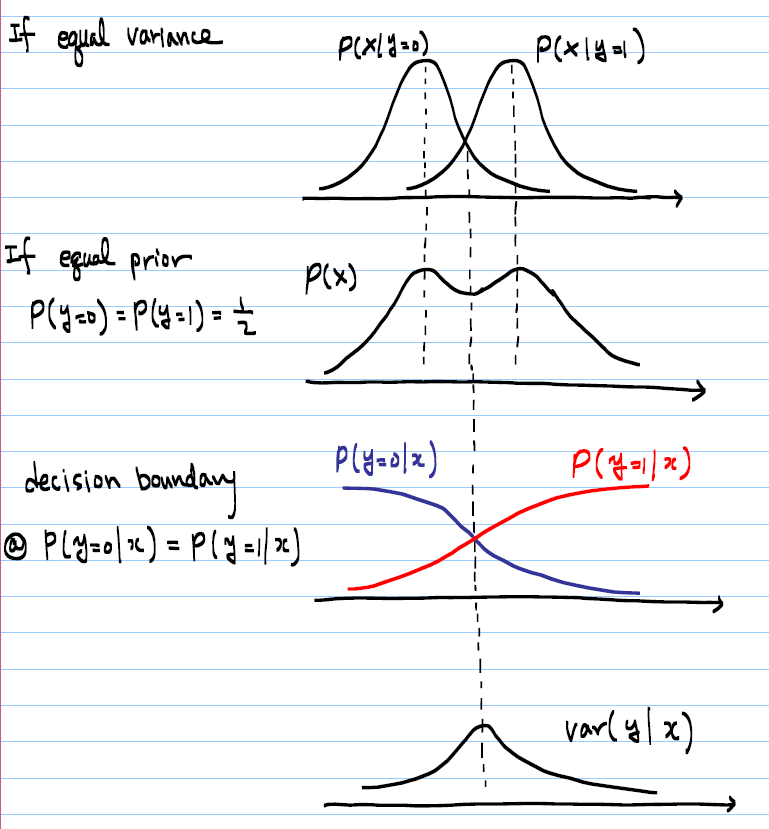 If equal variance
P(x|y=0) P(x|y=1)
If equal prior
P(x)
P(y=0) = P(y=1) = 1/2
P(y=0|x) P(y=1|x)
decision boundary
@ P(y=0|x) = P(y=1|x)
var(y|x)